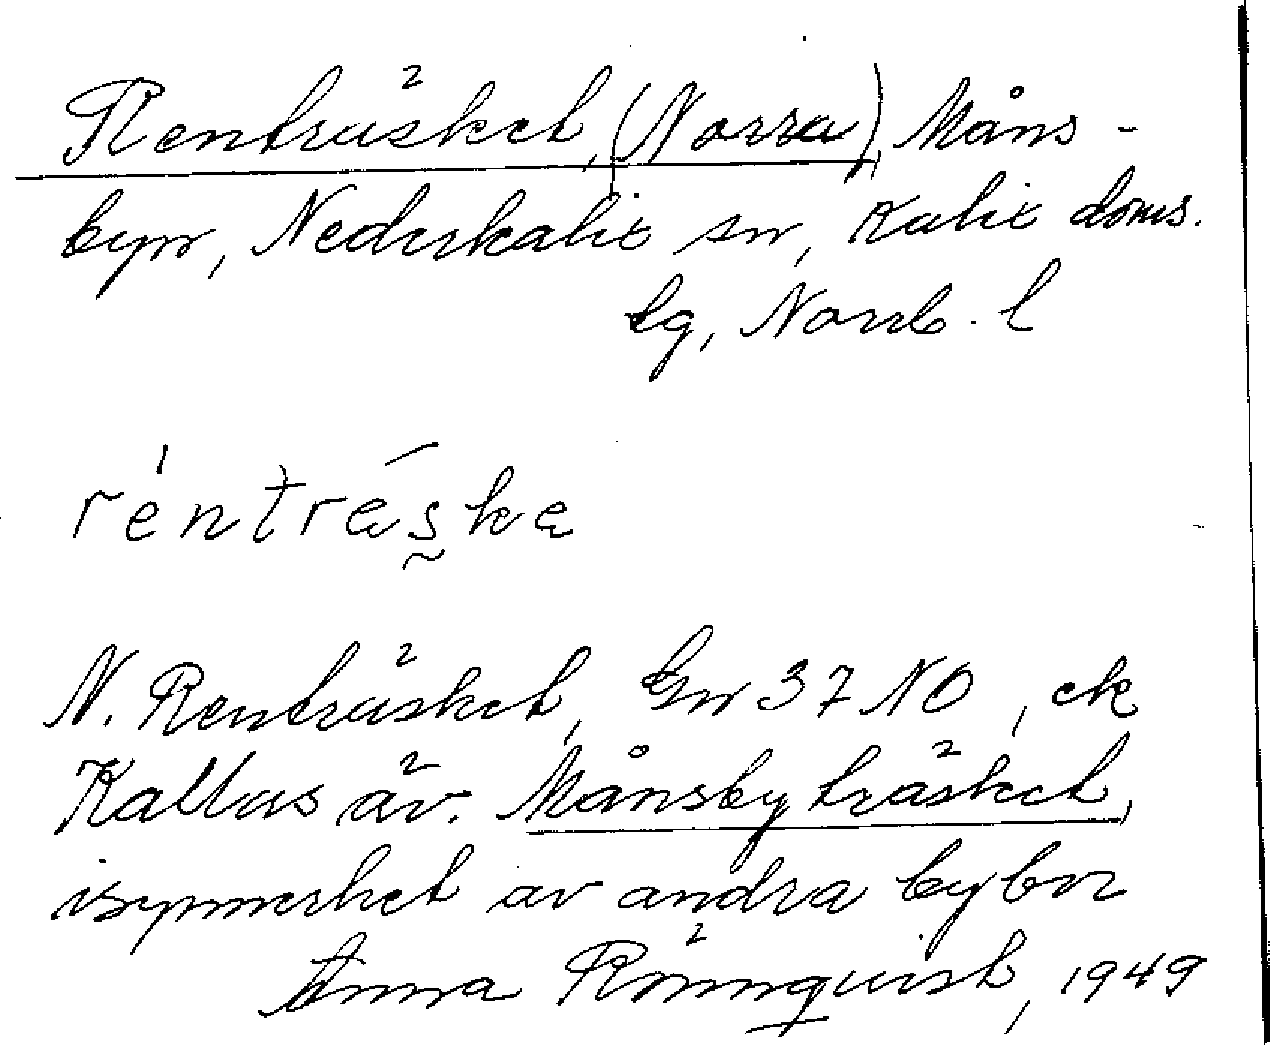 Renträsket, (Norra), Måns-
byn, Nederkalix sn, Kalix doms.
lg, Norrb. l
réntrǽske
N. Renträsket, Gn 37 NO, ek
Kallas äv. Månsbyträsket,
isynnerhet av andra bybor
Anna Rönnquist, 1949